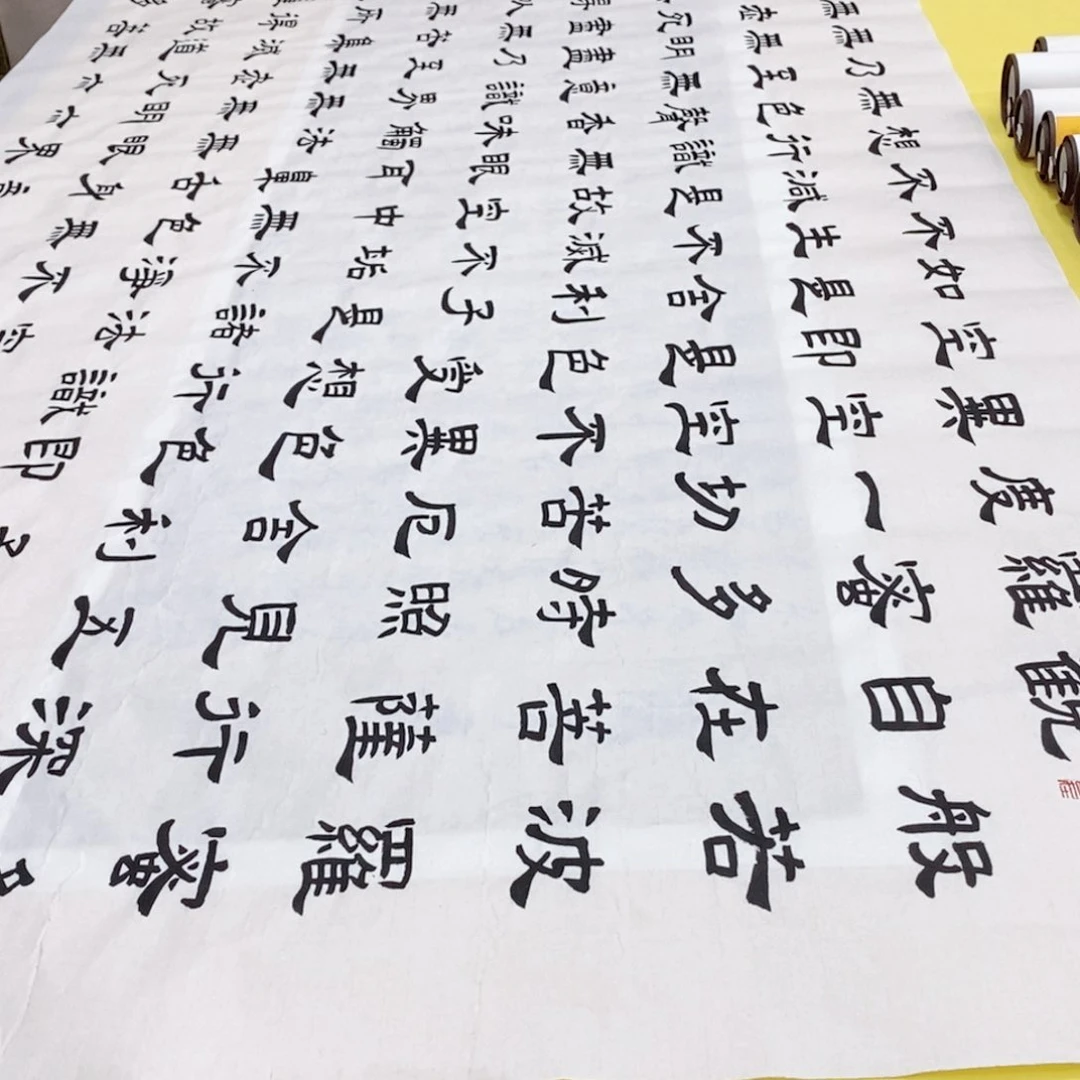 般若波羅蜜
觀自在菩薩行深
羅蜜多時照見五
度一切苦厄舍利子
異空空不異色色即
空即是色受想行識
如是舍利子是諸法空
不生不滅不垢不淨不
不減是故空中無色無
想行識無眼耳鼻舌身意
無色聲香味觸法無眼界
乃至無意識界無無明亦
無無明盡乃至無老死亦
無老死盡無苦集滅道無
得以無所得故菩